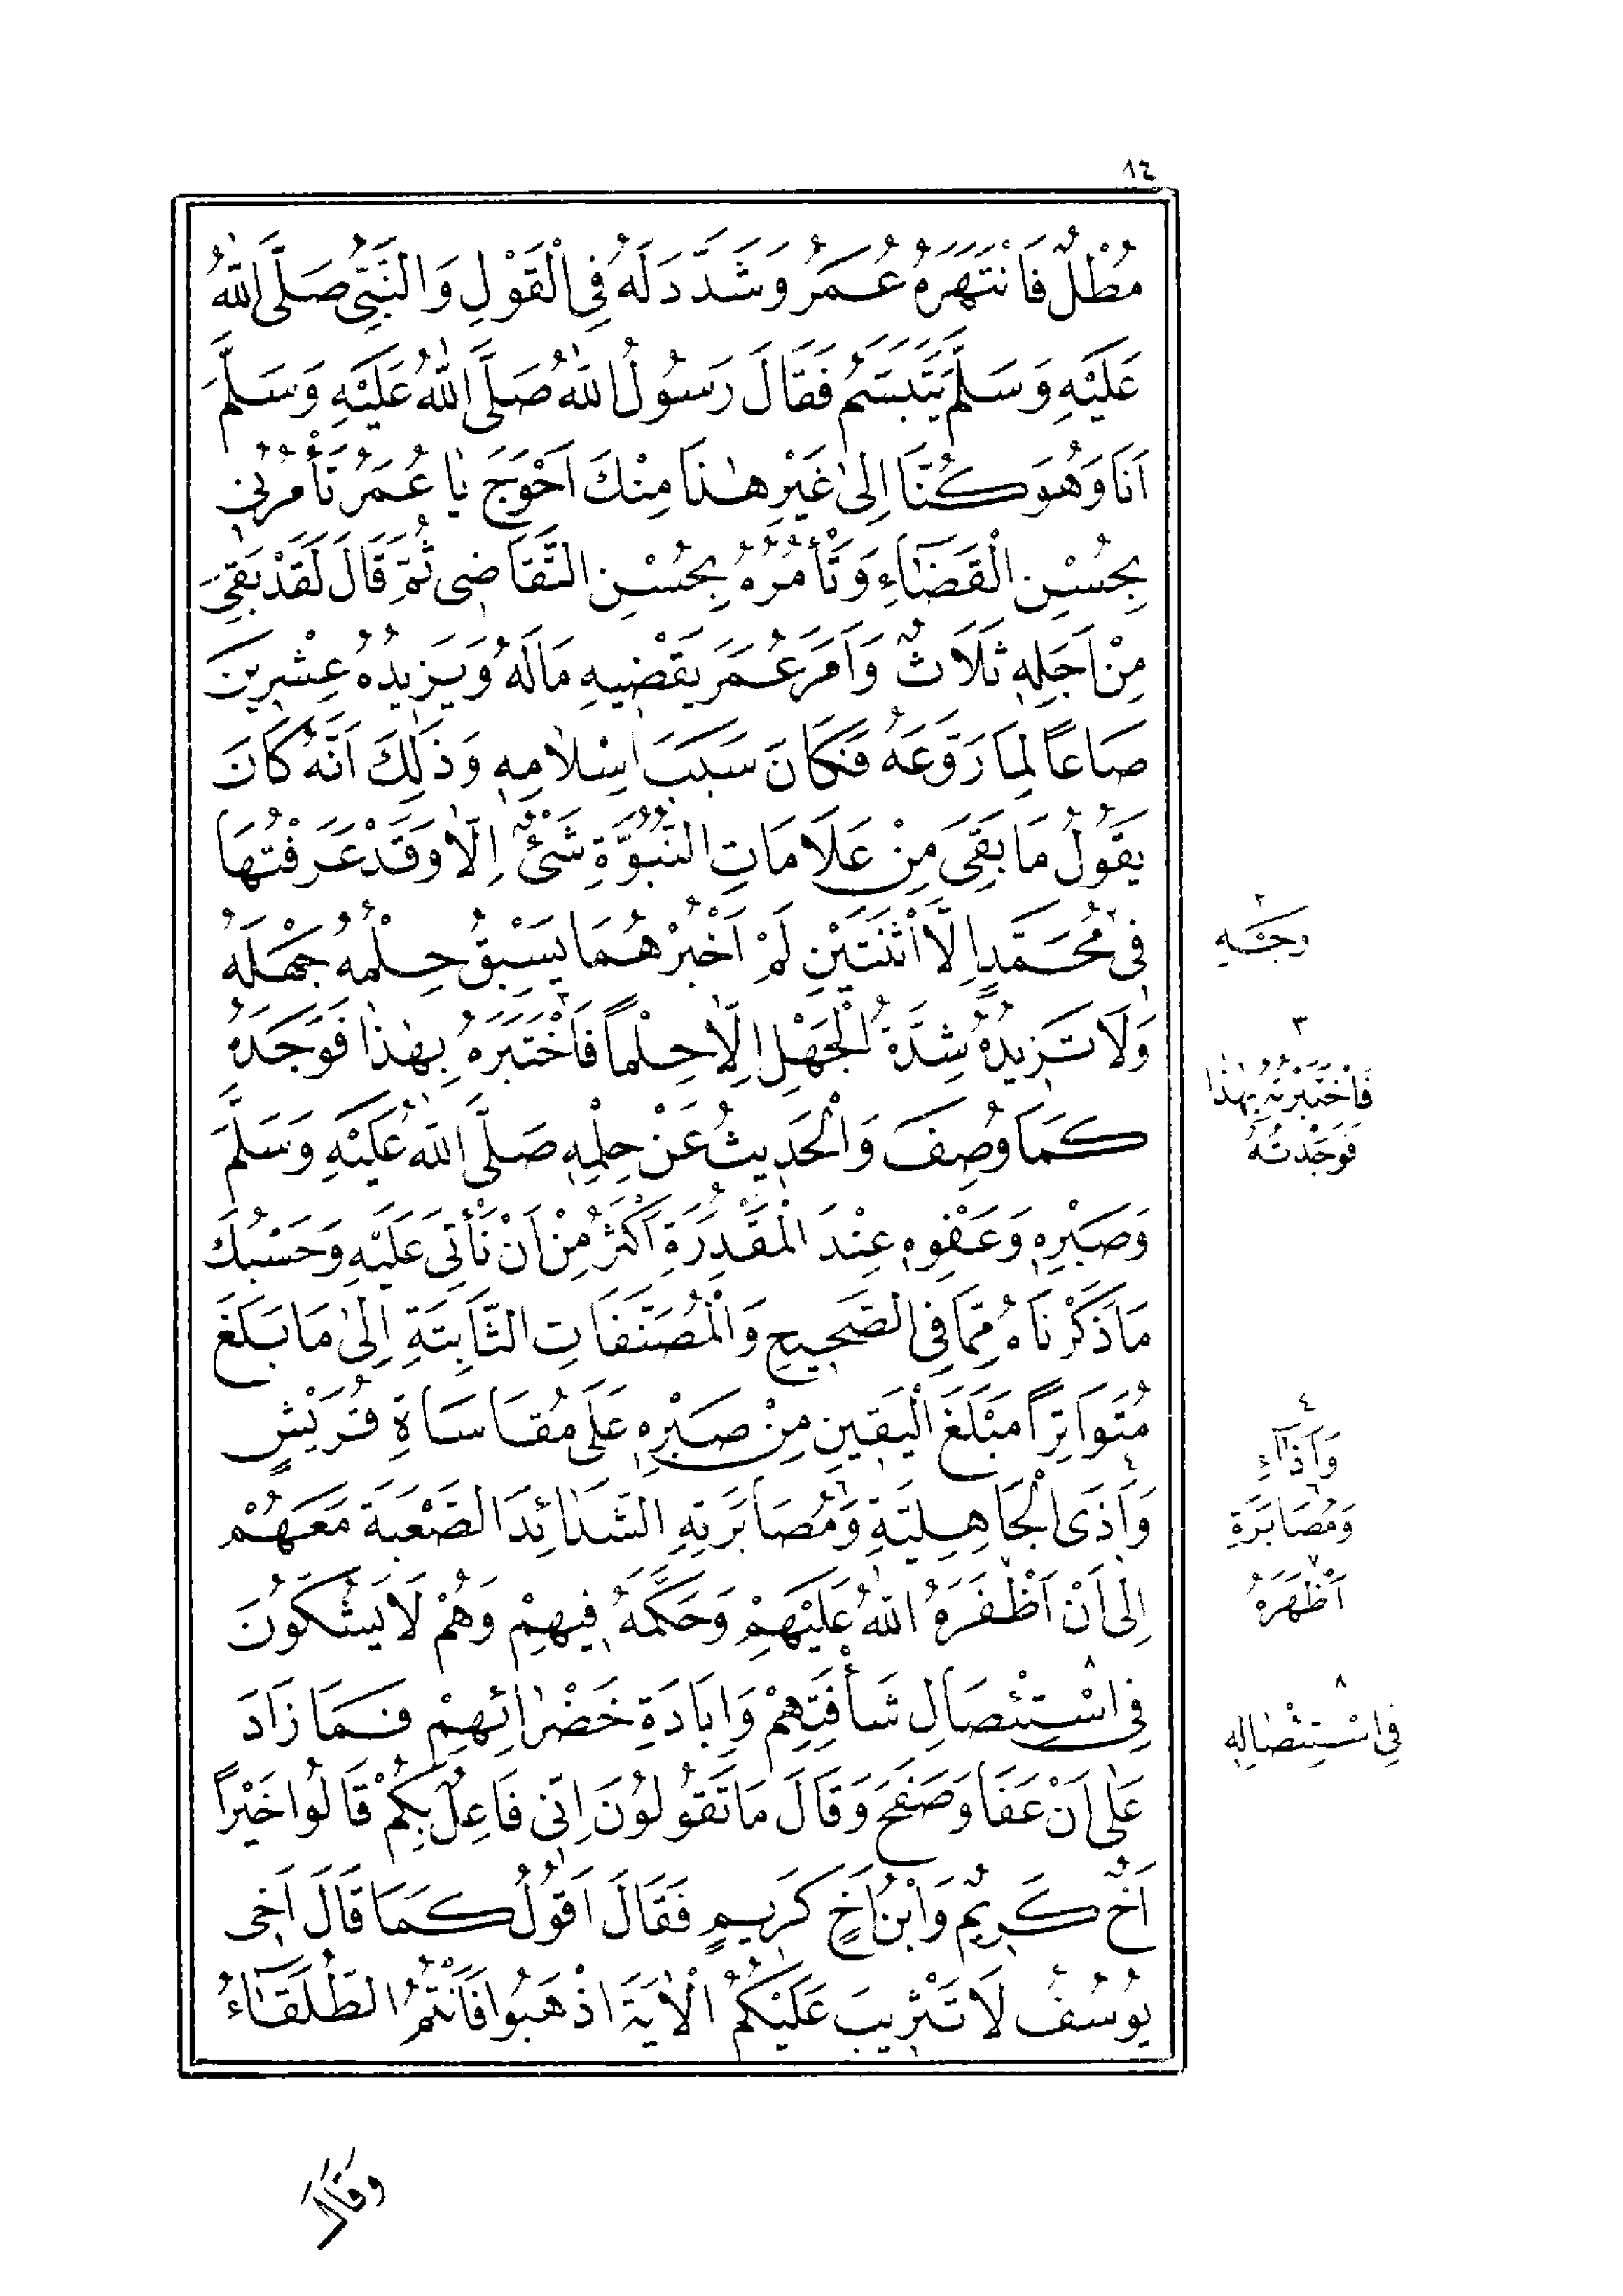 ١٤
مُطْلٌ فَانْتَهَرَهُ عُمَرُ وَشَدَّدَ لَهُ فِى الْقَوْلِ وَالنَّبِىُّ صَلَّى اللّٰهُ
عَلَيْهِ وَسَلَّمَ يَتَبَسَّمُ فَقَالَ رَسُولُ اللّٰهِ صَلَّى اللّٰهُ عَلَيْهِ وَسَلَّمَ
اَنَا وَهُوَ كُنَّا اِلىٰ غَيْرِ هٰذَا مِنْكَ اَحْوَجَ يٰا عُمَرُ تَأْمُرُنِى
بِحُسْنِ الْقَضَاءِ وَتَأْمُرُهُ بِحُسْنِ التَّقَاضِى ثُمَّ قَالَ لَقَدْ بَقِىَ
مِنْ اَجَلِهِ ثَلَاثٌ وَاَمَرَ عُمَرَ يَقْضِيهِ مَالَهُ وَيَزِيدُهُ عِشْرِينَ
صَاعًا لِمَا رَوَّعَهُ فَكَانَ سَبَبَ اِسْلَامِهِ وَذٰلِكَ اَنَّهُ كَانَ
يَقُولُ مَا بَقِىَ مِنْ عَلَامَاتِ النُّبُوَّةِ شَىْءٌ اِلَّا وَقَدْ عَرَفْتُهَا
فِى مُحَمَّدٍ اِلَّا اثْنَتَيْنِ لَمْ اَخْبُرْهُمَا يَسْبِقُ حِلْمُهُ جَهْلَهُ
وَلَا تَزِيدُهُ شِدَّةُ الْجَهْلِ اِلَّا حِلْمًا فَاخْتَبَرَهُ بِهٰذَا فَوَجَدَهُ
كَمَا وُصِفَ وَالْحَدِيثُ عَنْ حِلْمِهِ صَلَّى اللّٰهُ عَلَيْهِ وَسَلَّمَ
وَصَبْرِهِ وَعَفْوِهِ عِنْدَ الْمَقْدِرَةِ اَكْثَرُ مِنْ اَنْ نَأْتِىَ عَلَيْهِ وَحَسْبُكَ
مَا ذَكَرْنَاهُ مِمَّا فِى الصَّحِيحِ وَالْمُصَنَّفَاتِ الثَّابِتَةِ اِلىٰ مَا بَلَغَ
مُتَوَاتِرًا مَبْلَغَ الْيَقِينِ مِنْ صَبْرِهِ عَلَى مُقَاسَاةِ قُرَيْشٍ
وَاَذَى الْجَاهِلِيَّةِ وَمُصَابَرَتِهِ الشَّدَائِدَ الصَّعْبَةَ مَعَهُمْ
اِلىٰ اَنْ اَظْفَرَهُ اللّٰهُ عَلَيْهِمْ وَحَكَّمَهُ فِيهِمْ وَهُمْ لَا يَشُكُّونَ
فِى اسْتِئْصَالِ شَأْفَتِهِمْ وَاِبَادَةِ خَضْرَائِهِمْ فَمَا زَادَ
عَلىٰ اَنْ عَفَا وَصَفَحَ وَقَالَ مَا تَقُولُونَ اِنِّى فَاعِلٌ بِكُمْ قَالُوا خَيْرًا
اَخٌ كَرِيمٌ وَابْنُ اَخٍ كَرِيمٍ فَقَالَ اَقُولُ كَمَا قَالَ اَخِى
يُوسُفُ لَا تَثْرِيبَ عَلَيْكُمُ الْاٰيَةَ اذْهَبُوا فَاَنْتُمُ الطُّلَقَاءُ
٣
فَاخْتَبَرْتُهُ بِهٰذَا
فَوَجَدْتُهُ
٤
وَاَذَاءِ
٦
وَمُصَابَرَةِ
٧
اَظْهَرَهُ
٨
فِى اسْتِئْصَالِهِ
وَقَالَ